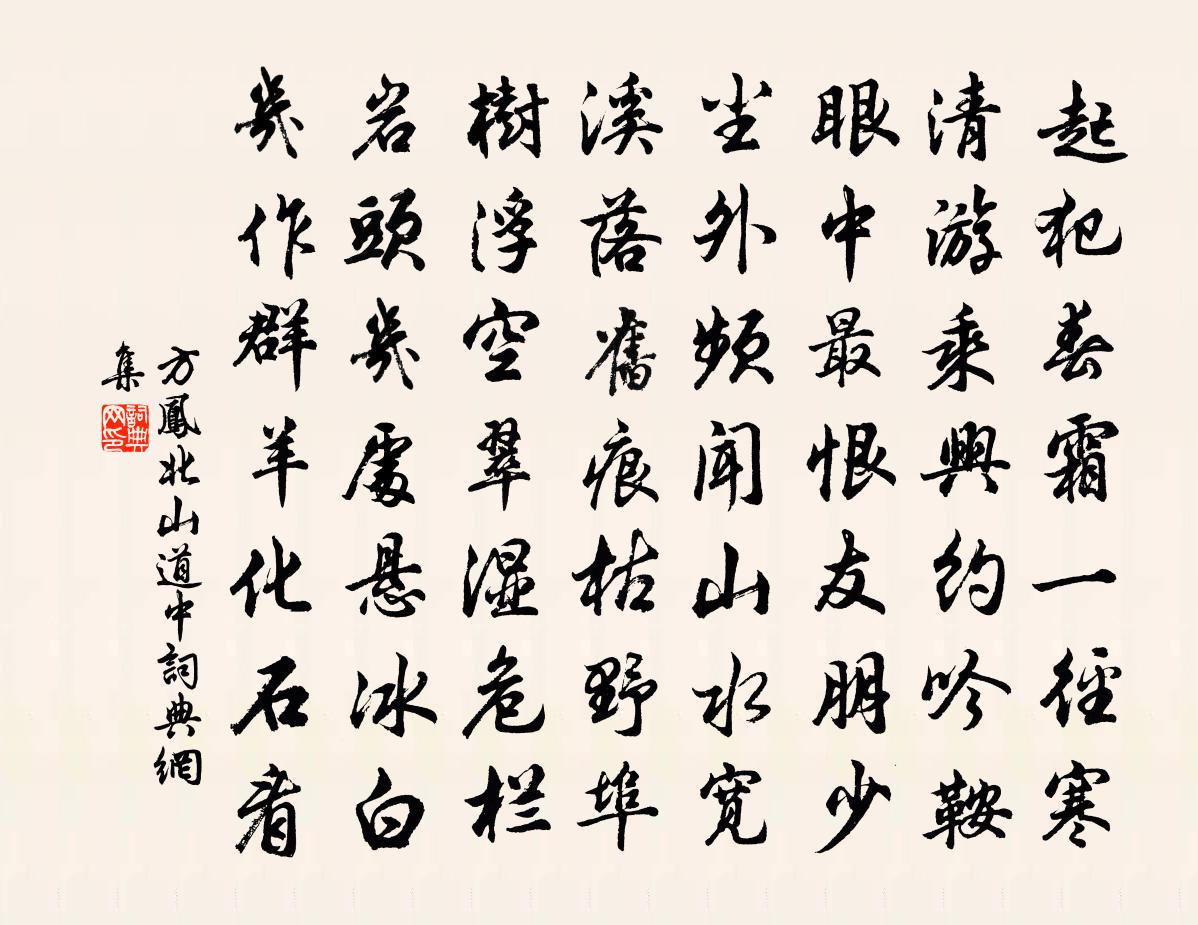 起犯春霜一径寒
清游乘興約吟鞍
眼中最恨友朋少
尘外頻聞山水寬
溪落舊痕枯野埠
樹浮空翠湿危栏
岩頭幾處悬冰白
幾作群羊化石看
方鳳北山道中詞典網
集
詞典网印